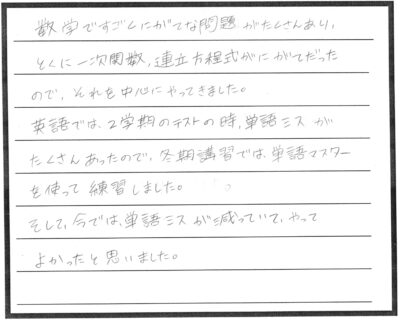 数学ですごくにがてな問題がたくさんあり、
とくに一次関数、連立方程式がにがてだった
ので、それを中心にやってきました。
英語では、2学期のテストの時、単語ミスが
たくさんあったので、冬期講習では、単語マスター
を使って練習しました。
そして、今では、単語ミスが減っていて、やって
よかったと思いました。